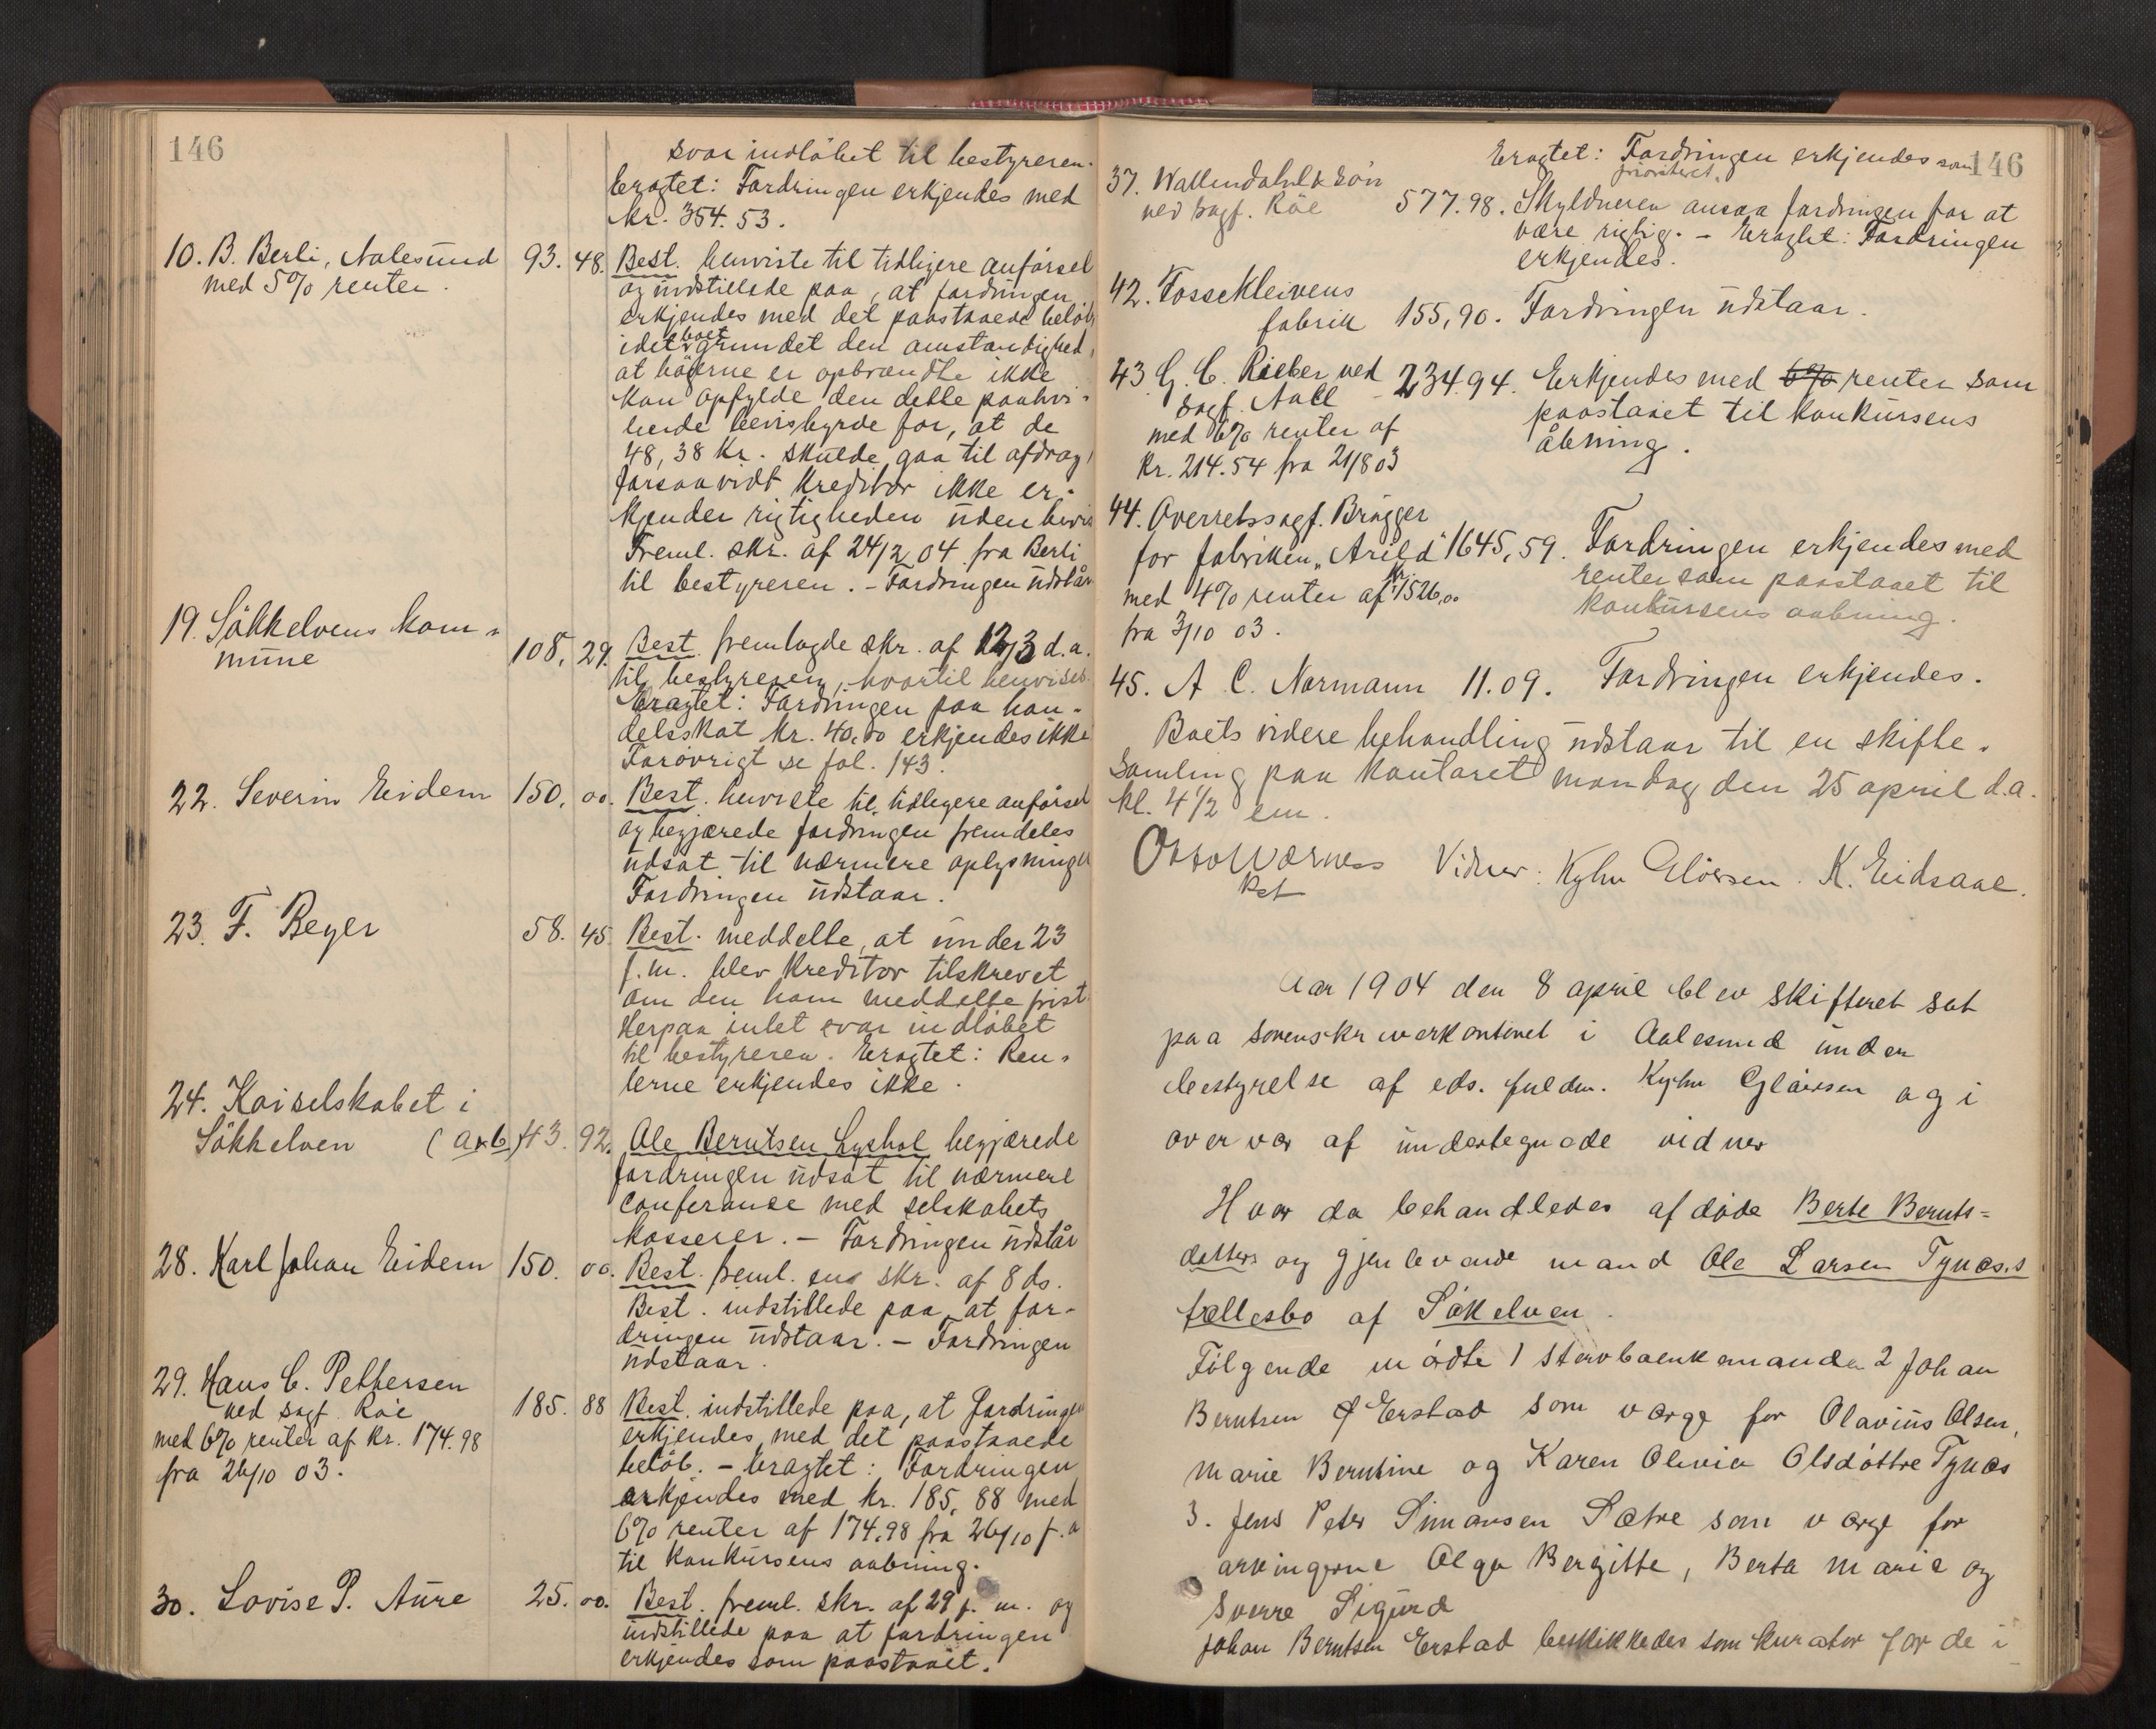 146
svar indløbet til bestyreren.
Eragtet: Fordringen erkjendes med
kr. 354.53.
10. B. Berli, Aalesund 93. 48. Best. henviste til tidligere anførsel
med 5% renter. og indstillede paa, at fordringen
erkjendes med det paastaaede beløb
idet boet grundet den omstændighed,
at bøgerne er opbrændte ikke
kan opfylde den dette paahvi-
lende bevisbyrde for, at de
48,38 kr. skulde gaa til afdrag,
forsaavidt kreditor ikke er-
kjender rigtigheden uden bevis
Freml. skr. af 24/2 04 fra Berli
til bestyreren. - Fordringen udstår
19. Søkkelvens kom-
mune 108. 29. Best. fremlagde skr. af 12/3 d.a.
til bestyreren, hvortil henvises.
Eragtet: Fordringen paa han-
delsskat kr. 40,00 erkjendes ikke
Forøvrigt se fol. 143.
22. Severin Eidem 150. 00. Best. henviste til tidligere anførsel
og begjærede fordringen fremdeles
udsat til nærmere oplysninger
Fordringen udstaar.
23. F. Beyer 58. 45. Best. meddelte, at under 23
f.m. blev kreditor tilskrevet
om den ham meddelte frist.
Herpaa intet svar indløbet
til bestyreren. Eragtet: Ren-
terne erkjendes ikke.
24. Kaiselskabet i
Søkkelven (a+b) 43. 92. Ole Berntsen Lyshol begjærede
fordringen udsat til nærmere
conferanse med selskabets
kasserer. - Fordringen udstår
28. Karl Johan Eidem 150. 00. Best. freml. skr. af 8 ds.
Best. indstillede paa, at for-
dringen udstaar. - Fordringen
udstaar.
29. Hans C. Pettersen
ved sagf. Röe 185. 88 Best. indstillede paa, at fordringen
med 6% renter af kr. 174.98 erkjendes med det paastaaede
fra 26/10 03. beløb. - Eragtet: Fordringen
erkjendes med kr. 185,88 med
6% renter af 174.98 fra 26/10 f.a
til konkursens aabning.
30. Lovise P. Aure 25. 00. Best. freml. skr. af 29 f.m. og
indstillede paa at fordringen
erkjendes som paastaaet.
Eragtet: Fordringen erkjendes som 146
prioriteret.
37. Wallendahl & Søn
ved sagf. Röe 577.98. Skyldneren ansaa fordringen for at
være rigtig. - Eragtet: Fordringen
erkjendes.
42. Fossekleivens
fabrik 155,90. Fordringen udstaar.
43 G. C. Rieber ved 234.94. Erkjendes med 6% renter som
sagf. Aall paastaaet til konkursens
med 6% renter af åbning.
kr. 214.54 fra 21/8 03
44. Overretssagf. Brügger
for fabriken "Arild" 1645,59. Fordringen erkjendes med
med 4% renter af kr 1526,00 renter som paastaaet til
fra 3/10 03. konkursens aabning.
45. A C. Normann 11.09. Fordringen erkjendes.
Boets videre behandling udstaar til en skifte-
samling paa kontoret mandag den 25 april d.a.
kl. 4 1/2 em.
Otto Værness Vidner: Kyhn Gløersen. K. Eidsaae.
kst
Aar 1904 den 8 april blev skifteret sat
paa sorenskriverkontoret i Aalesund under
bestyrelse af eds. fuldm. Kyhn Gløersen og i
overvær af undertegnede vidner
Hvor da behandledes afdøde Berte Bernts-
datters og gjenlevende mand Ole Larsen Tynes.s
fællesbo af Søkelven.
Følgende mødte 1 stervboenkemanden 2 Johan
Berntsen Erstad som værge for Olavius Olsen,
Marie Berntine og Karen Olivia Olsdøttre Tynes
3. Jens Peter Simonsen Sætre som værge for
arvingerne Olga Bergitte, Berta Marie og
Sverre Sigurd
Johan Berntsen Erstad beskikkedes som kurator for de i